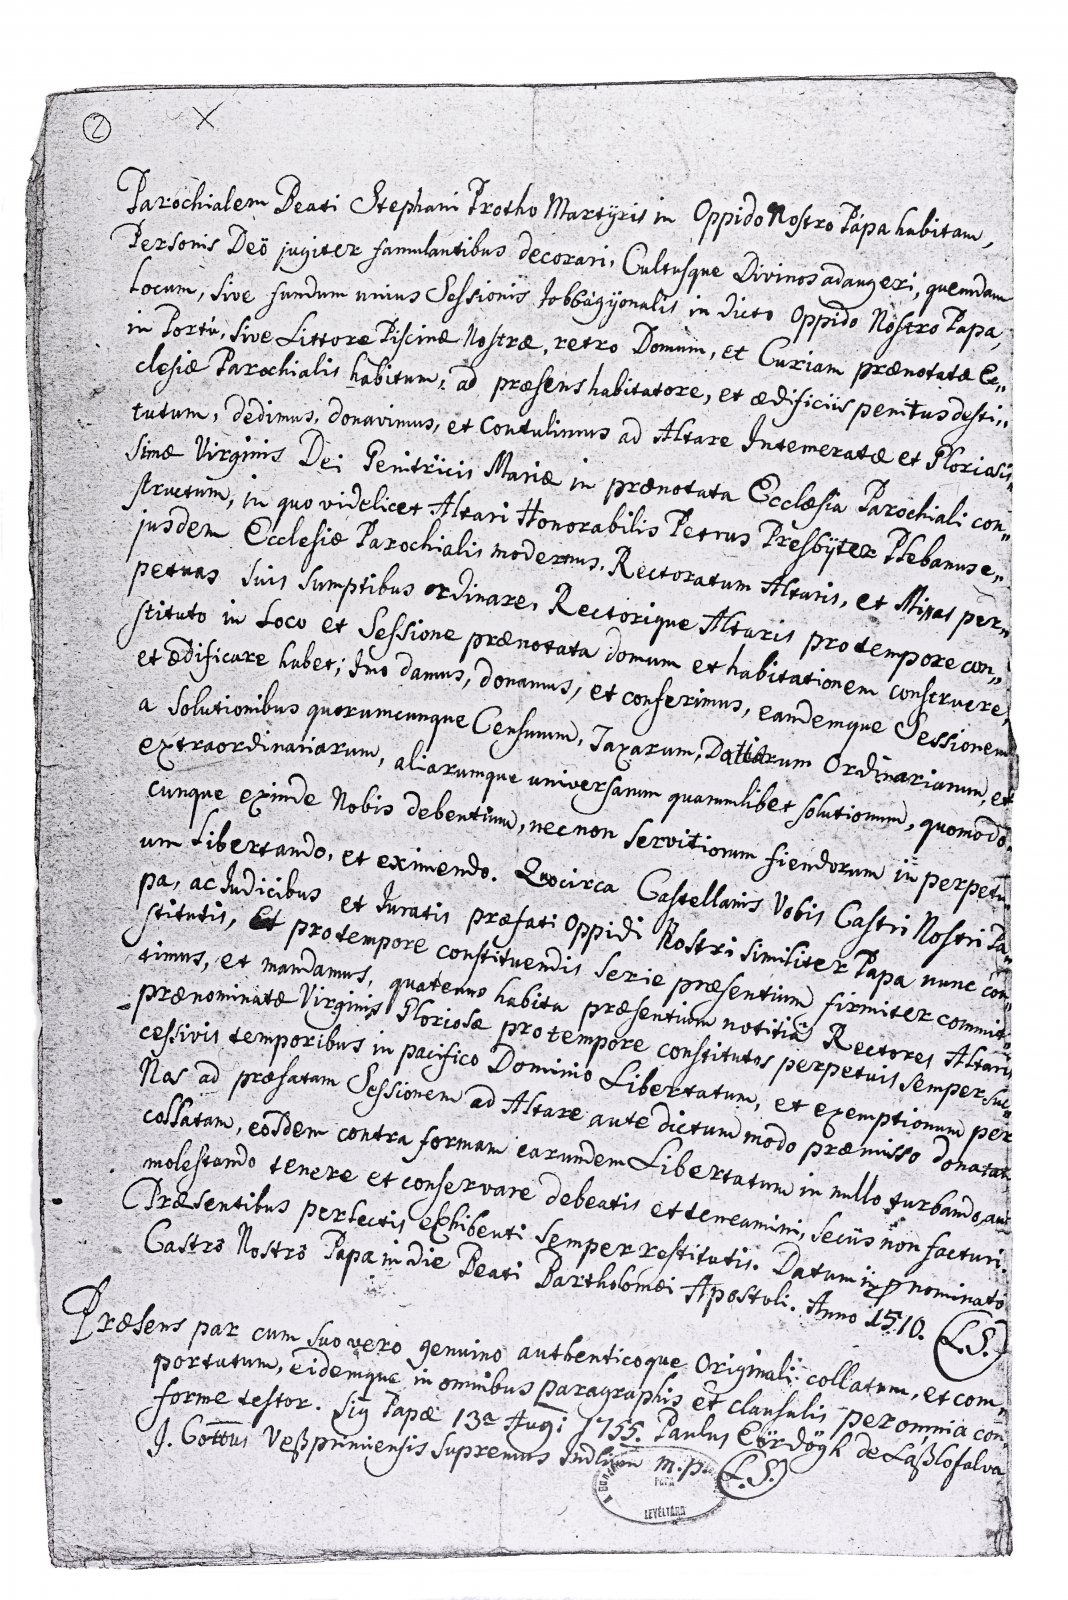 2
Parochialem Beati Stephani Protho Martÿris in Oppido Nostro Pápa habitam,
Personis Deö jugiter famulantibus decorari, Cultusque Divinos adaugeri, quemdam
Locum, sive fundum unius Sessionis Jobbágÿonalis in dicto Oppido Nostro Papa,
in Portu, sive Littore Piscinæ Nostræ, retro Domum, et Curiam prænotatæ Ec„
clesiæ Parochialis habitum, ad præsens habitatore, et ædificiis penitus desti„
tutum, dedimus, donavimus, et contulimus ad Altare Intemeratæ et Gloriosis„
simæ Virginis Dei Genitricis Mariæ in prænotata Ecclæsia Parochiali con„
structum, in quo videlicet Altari Honorabilis Petrus Presbÿter Plebanus e„
jusdem Ecclesiæ Parochialis modernus, Rectoratum Altaris, et Missas per„
petuas suis sumptibus ordinare, Rectorique Altaris pro tempore con„
stituto in Loco et Sessione prænotata domum et habitationem construere,
et ædificare habet; Imo damus, donamus, et conferimus, eandemque Sessionem
a solutionibus quorumcunque Censuum, Taxarum, Datiarum Ordinariarum, et
extraordinariarum, aliarumque universarum quarumlibet solutionum, quomodo„
cunque exinde Nobis debentium, nec non servitiorum fiendorum in perpetu„
um Libertando, et eximendo. Quocirca Castellanis Vobis Castri Nostri Pa„
pa, ac Judicibus et Juratis præfati Oppidi Nostri similiter Papa nunc con„
stitutis, et pro tempore constituendis serie præsentium firmiter commit„
timus, et mandamus, quatenus habita præsentium notitia Rectores Altaris
prænominatæ Virginis Gloriosæ pro tempore constitutos perpetuis semper suc„
cessivis temporibus in pacifico Dominio Libertatum, et exemptionum per
Nos ad præfatam Sessionem ad Altare ante dictum modo præmisso donatam
collatam, eosdem contra formam earundem Libertatum in nullo turbando, aut
molestando tenere et conservare debeatis et teneamini, secüs non facturi.
Præsentibus perlectis exhibenti semper restitutis. Datum in prænominato
Castro Nostro Papa in die Beati Bartholomæi Apostoli. Anno 1510. (L.S.)
Præsens par cum suo vero genuino authenticoque Originali collatum, et com„
portatum, eidemque in omnibus paragraphis et clausulis per omnia con„
forme testor. Sig Papæ 13a Augi 1755. Paulus Eördögh de Laßlofalva
J. Cottus Veßprimiensis supremus Judlium m.p. (L.S.)
PÁPA
LEVÉLTÁRA